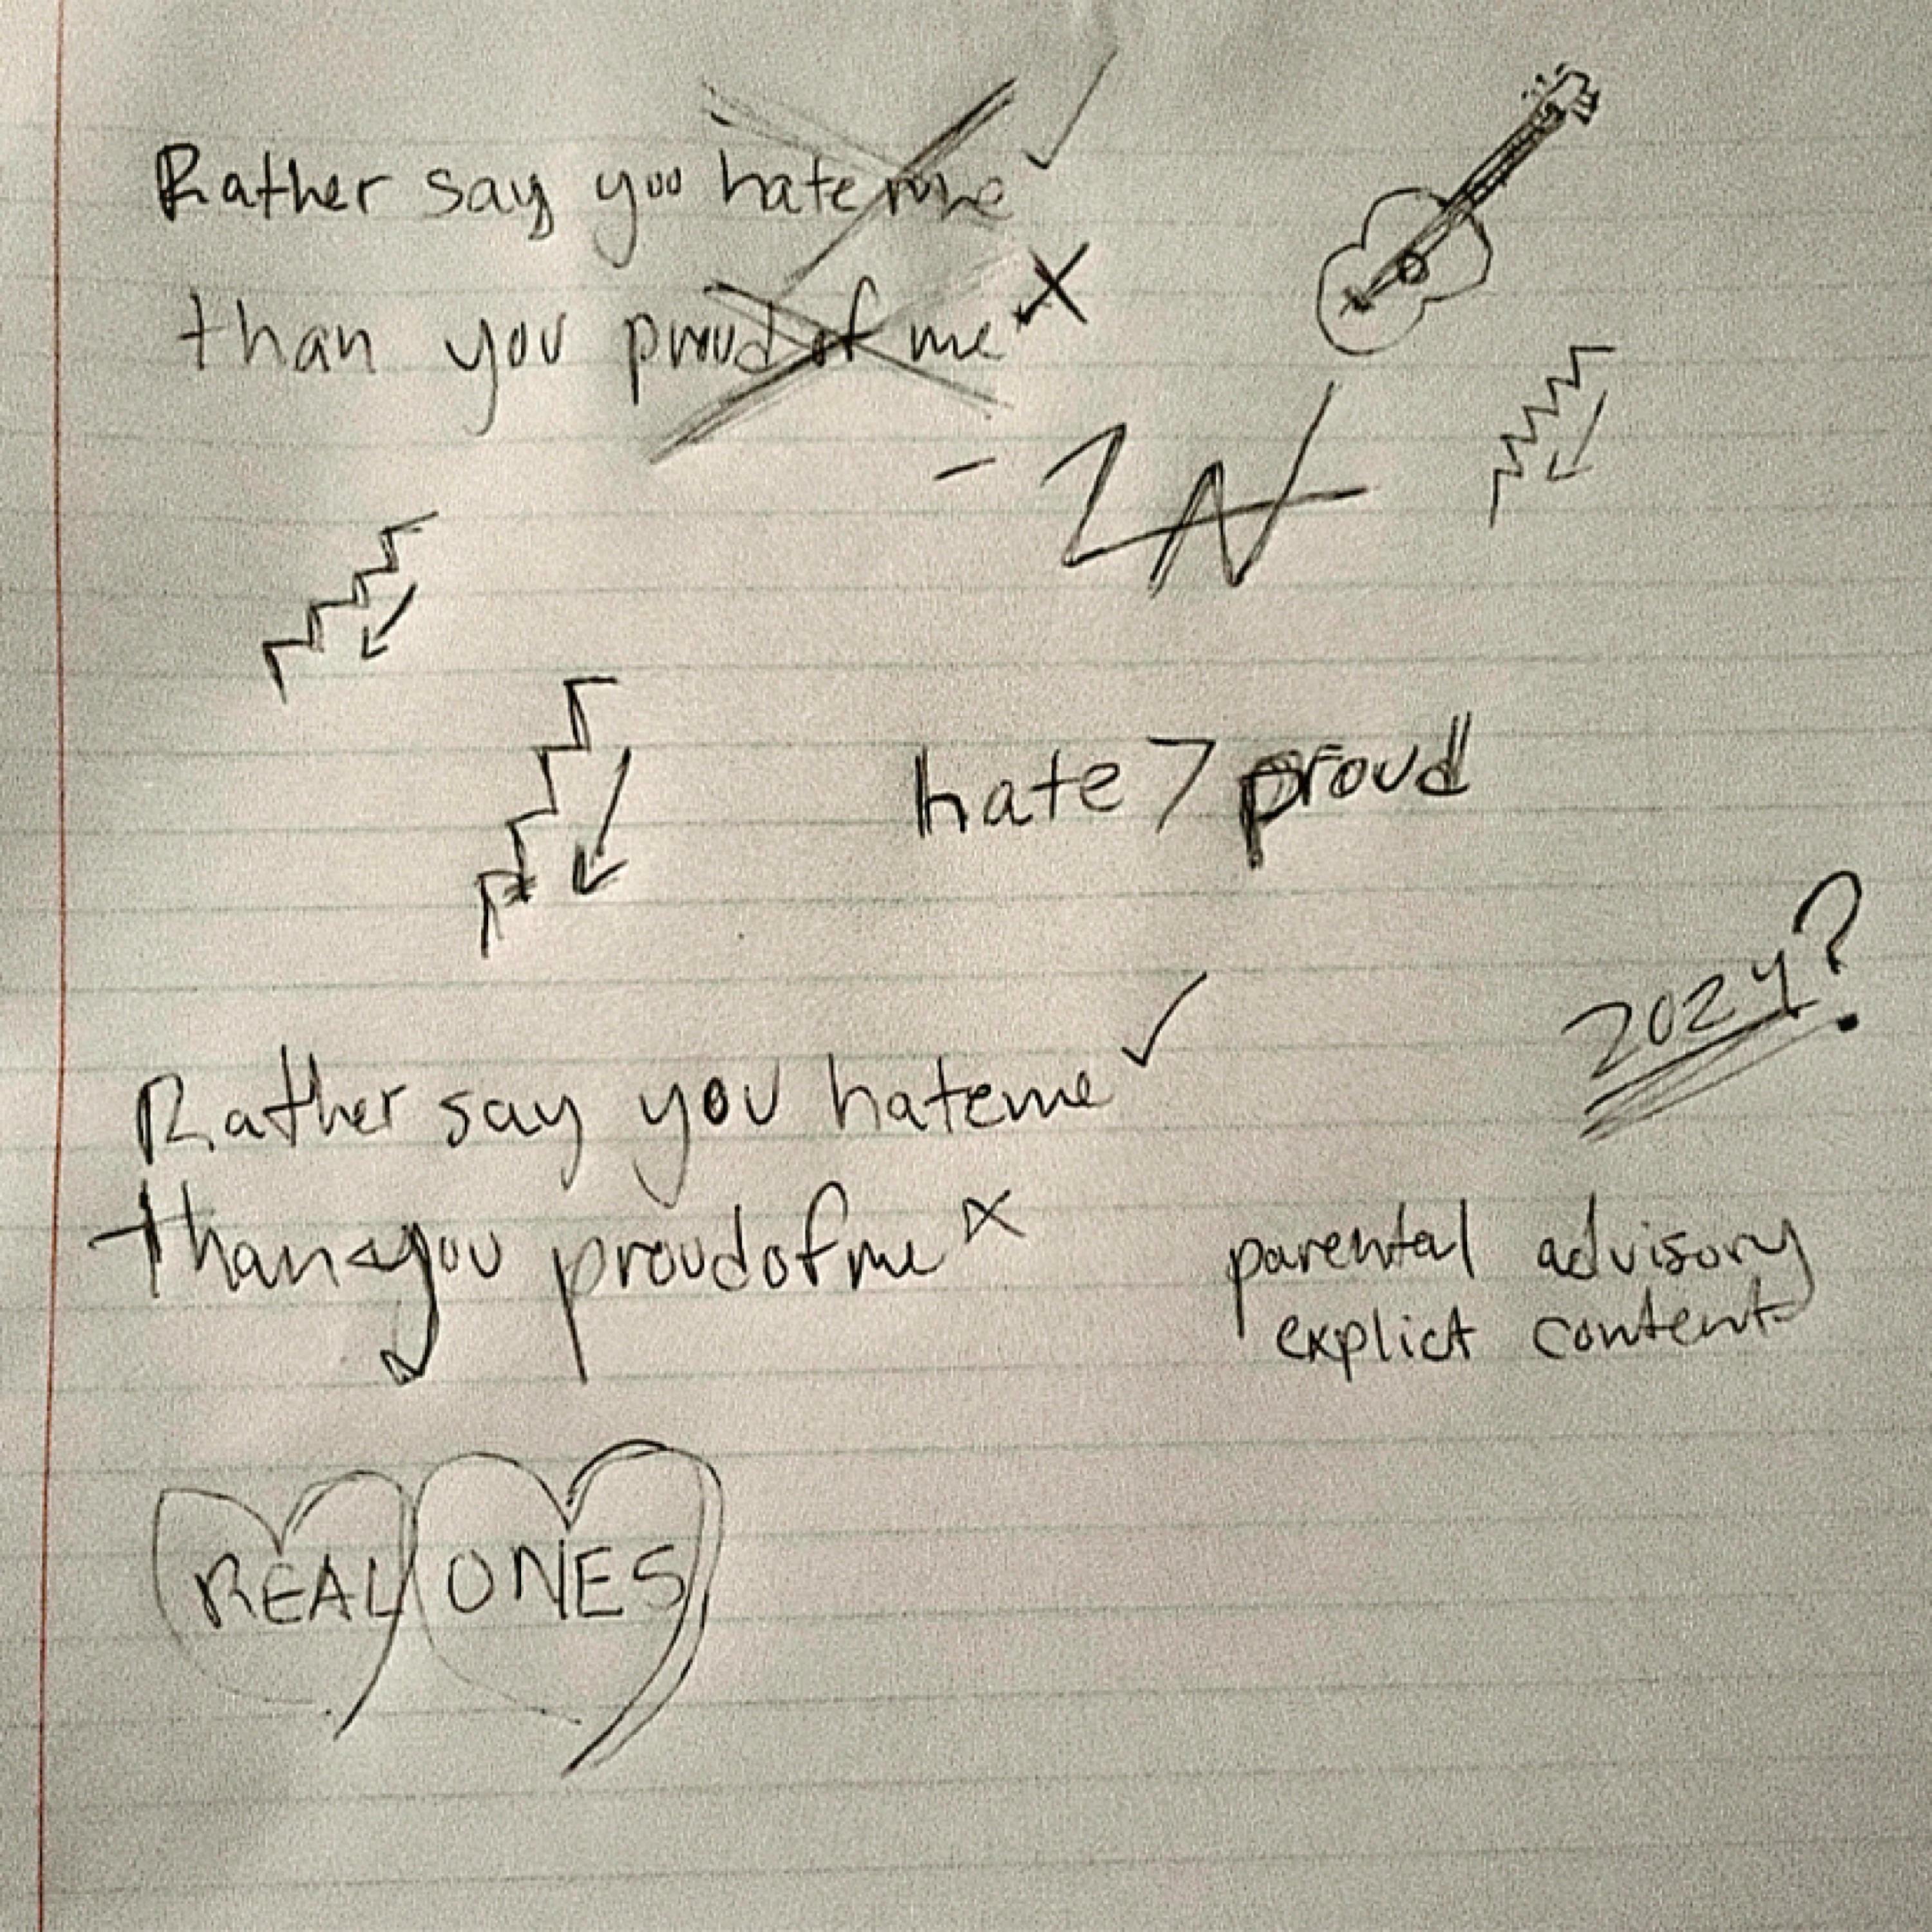 Rather say you hate me ✓
than you proud of me X
- ZN
hate > proud
2024?
Rather say you hate me ✓
than you proud of me x
parental advisory
explict content
REAL ONES